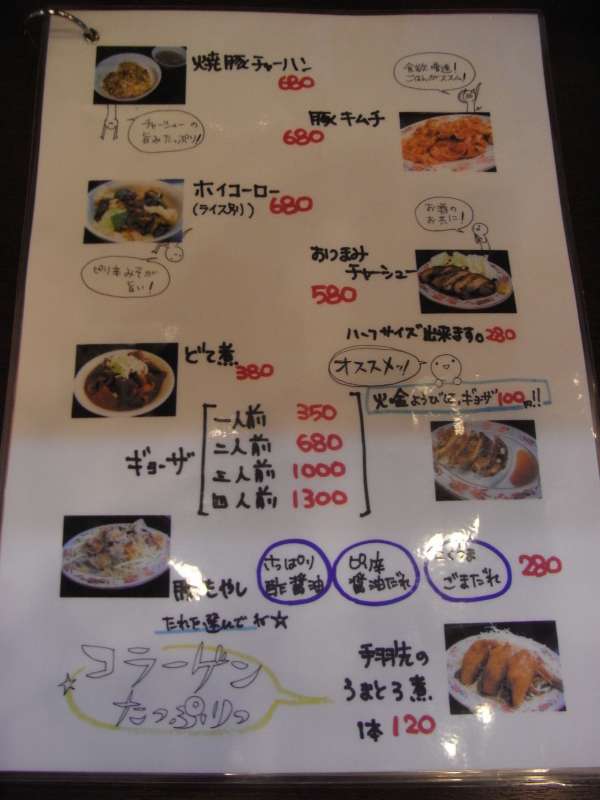 焼豚チャーハン
680
チャーシューの
旨みたっぷり!
食欲増進!
ごはんがススム!
豚キムチ
680
ホイコーロー
(ライス別)
680
ピリ辛みそが
旨い!
お酒の
お共に!
おつまみ
チャーシュー
580
ハーフサイズ出来ます。280
どて煮
380
オススメッ!
火・金ようびに、ギョーザ100円!!
ギョーザ
一人前 350
二人前 680
三人前 1000
四人前 1300
豚もやし
さっぱり
酢醤油
ピリ辛
醤油だれ
ごまだれ
280
たれた選んでね☆
コラーゲン
たっぷりっ
手羽先の
うまとろ煮
1本 120